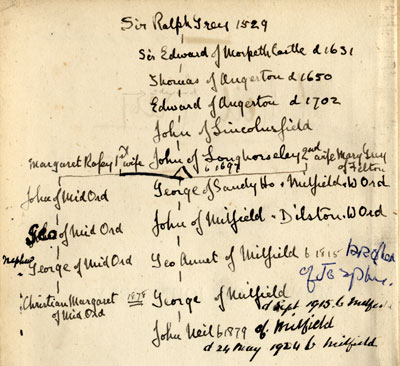 Sir Ralph Grey 1529
Sir Edward of Morpeth Castle d 1631
Thomas of Angerton d 1650
Edward of Angerton d 1702
John of Lincolnsfield
Margaret 1st wife John of Longhorseley 2nd wife Mary Gray of Felton
b 1697
John of Mid Ord George of Sandy Ho & Milfield. W Ord
Geo of Mid Ord John of Milfield - Dilston. W Ord
nephew George of Mid Ord Geo Annet of Milfield b 1815 Brother of
Christian Margaret of Mid Ord 1878 George of Milfield
d Sept 1915 b Milfield
John Neil b 1879 of Milfield
d 24 May 1924 b Milfield